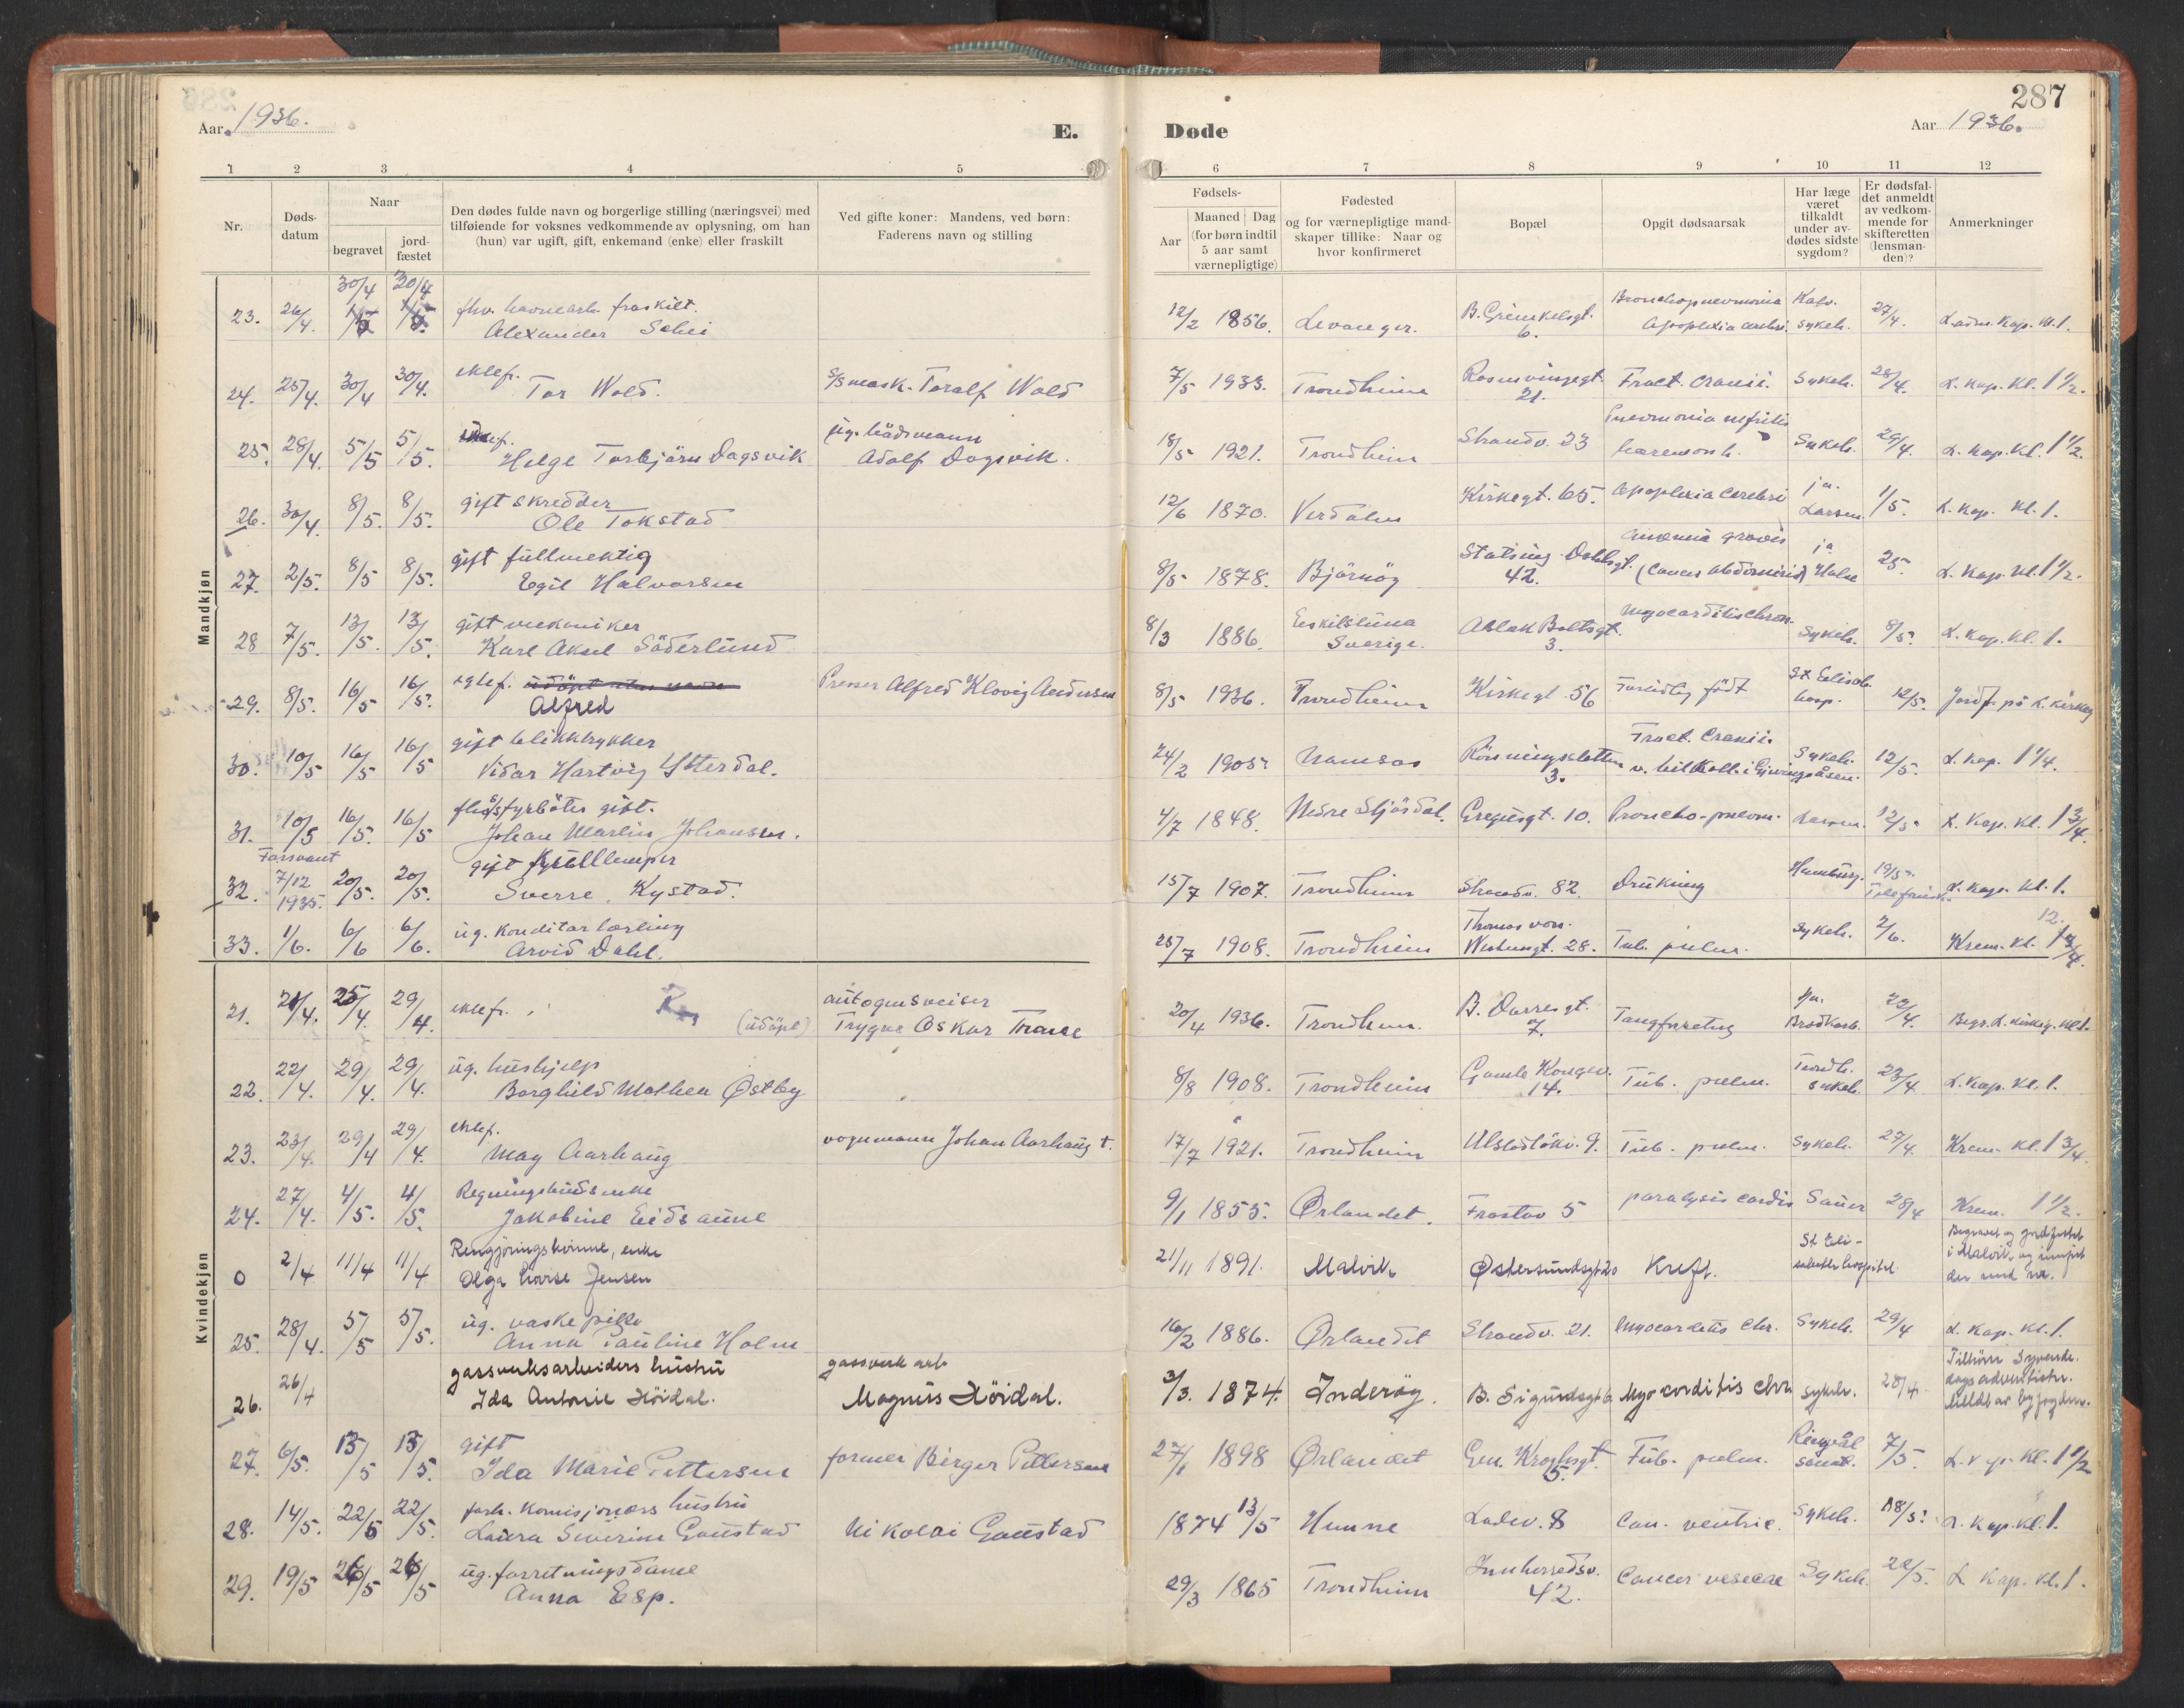 287
Aar 1936.
E.
Døde
Aar 1936.
1 2 3 4 5 6 7 8 9 10 11 12
Nr.
Døds-
datum
Naar
begravet
jord-
fæstet
Den dødes fulde navn og borgerlige stilling (næringsvei) med
tilføiende for voksnes vedkommende av oplysning, om han
(hun) var ugift, gift, enkemand (enke) eller fraskilt
Ved gifte koner: Mandens, ved børn:
Faderens navn og stilling
Fødsels-
Aar
Maaned Dag
(for børn indtil
5 aar samt
værnepligtige)
Fødested
og for værnepligtige mand-
skaper tillike: Naar og
hvor konfirmeret
Bopæl
Opgit dødsaarsak
Har læge
været
tilkaldt
under av-
dødes sidste
sygdom?
Er dødsfal-
det anmeldt
av vedkom-
mende for
skifteretten
(lensman-
den)?
Anmerkninger
Mandkjøn
30/4 20/4
23. 26/4. fhv. havnearb. fraskilt. 12/2 1856. Levanger. B. Grimkelsgt. Bronchopneumonia 27/4.
Alexander Schei 6. Apoplexia cerebri sykeh. Kl. 1.
ektef. s/s mask. Toralf Wold
24. 25/4. 30/4 30/4. Tor Wold. 7/5 1933. Trondheim Rosenvingegt. Fract. cranii. Sykeh. 28/4. L. kap. Kl. 1 1/2.
21.
25. 28/4. 5/5 5/5. Helge Torbjörn Dagsvik Adolf Dagsvik. 18/5 1921. Trondheim Strandv. 23 Pneumonia nefritis Sykeh. 29/4. L. Kap. Kl. 1 1/2.
gift skredder
26. 30/4. 8/5. 8/5. Ole Tokstad 12/6 1870. Verdalen Kirkegt. 65. Apoplexia cerebri ja. Larsen. 1/5. L. Kap. Kl. 1.
gift fullmektig
27. 2/5. 8/5 8/5. Egil Halvorsen 8/5 1878. Bjørnör Statsing. Dahlsgt. 42. Anæmia gravis ja
(Cancer abdominis) L. Kap. Kl. 1 1/2.
gift mekaniker
28 7/5. 13/5. 13/5. Karl Aksel Söderlund 8/3 1886. Eskilstuna Sverige. Aslak Boltsgt. 3. Myocarditis chron. Sykeh. 8/5. L. Kap. Kl. 1.
29. 8/5. 16/5 16/5. Alfred Presser Alfred Klovig Andersen 8/5 1936. Trondheim Kirkegt. 56 Fortidlig född St Elisab. hosp. 12/5. Jordf. på L. kirkeg
gift blikktrykker
30. 10/5 16/5 16/5 Vidar Hartvig Ytterdal. 24/2 1905. Namsos Rönningsletten 3. Fract. Cranii Sykeh. 12/5. L. kap. 1 1/4.
fhv. s/s fyrböter gift.
31. 10/5 16/5. 16/5 Johan Martin Johansen. 4/7 1848. Nedre Stjördal. Gregusgt. 10. Broncho-pneum. Larsen. 12/5. L. Kap. Kl. 1 3/4.
Forsvant
32. 7/12 1935. 20/5. 20/5. gift kullemper
Sverre Kystad. 15/7 1907. Trondheim Strandv. 82. Drukning Hamburg. 19/5. L. Kap. Kl. 1.
ug. Konditorlærling
33. 1/6. 6/6 6/6. Arvid Dahl. 25/7 1908. Trondheim Thomas von Westensgt. 28. Tub. pulm. Sykeh. 2/6. Krem. Kl. 12.
Kvindekjøn
21. 21/4. 25/4. 29/4. ektef. (udöpt) autogensveiser
Trygve Oskar 20/4 1936. Trondheim. B. Darresgt. 7. Tangforretng ja. 22/4. Begr. L. kirkeg. Kl. 1.
ug. hushjelp
22. 22/4. 29/4. 29/4. Borghild Mathea Østby 8/8 1908. Trondheim Gamle Kongev. 14. Tub. pulm. Trondh. sykeh. 23/4. L. Kap. Kl. 1.
ektef.
23. 23/4. 29/4 29/4. May Aarhaug vognmann Johan Aarhaug †. 17/7 1921. Trondheim Ulstadlökv. 9. Tub. pulm. Sykeh. 27/4. Krem. Kl. 1 3/4.
Regningsbuds enke
24. 27/4. 4/5. 4/5. Jakobine Eidsaune 9/1 1855. Ørlandet. Frostav 5 paralysis cordis Sauer 28/4 Krem. 1 1/2.
Rengjøringskvinne, enke
0 2/4 11/4 11/4 Olga Lovise Jensen 21/11 1891. Malvik Østersundsgt 20 Kreft. St. Eli-
sabeths hospital. Begravet og jordfestet
i Malvik og innført
der med nr.
ug. vaskepike
25. 28/4. 5/5 5/5. Anna Pauline Holm 16/2 1886. Ørlandet Strandv. 21. Myocarditis chr. Sykeh. 29/4 L. Kap. Kl. 1.
gassverksarbeiders hustru gassverk arb.
26. 26/4 Ida Antonie Höidal. Magnus Höidal. 3/3. 1874. Inderöy. B. Sigurdsgt 6 Myocarditis chr. sykeh. 28/4. Tilhörer Syvende-
dags adventister.
Meldt av byfogden.
gift
27. 6/5. 13/5 13/5. Ida Marie Pettersen former Birger Pettersen 27/1 1898 Ørlandet Gen. Kroghsgt. 5. Tub. pulm. Ringvål sanat. 7/5. Kl. 1 1/2
forh. Komisjonærs hustru
28. 14/5. 22/5 22/5. Laura Severine Gaustad Nikolai Gaustad 1874 13/5 Hunne Ladev. 8 Can. ventric. Sykeh. 18/5. L. Kap. Kl. 1.
ug. forretningsdame
29. 19/5 26/5 26/5 Anna Esp. 29/3 1865 Trondheim Innherredsv. 42. Cancer vesicae Sykeh. 22/5. L. Kap. Kl. 1.